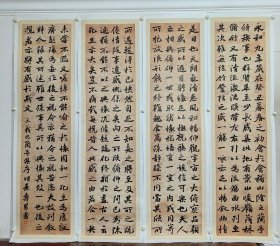 永和九年歲在癸丑暮春之初會于會稽山陰之蘭亭
脩禊事也群賢畢至少長咸集此地有崇山峻領茂林
脩竹又有清流激湍映帶左右引以為流觴曲水列坐
其次雖無絲竹管弦之盛一觴一詠亦足以暢敘幽情
是日也天朗氣清惠風和暢仰觀宇宙之大俯察品類
之盛所以遊目騁懷足以極視聽之娛信可樂也夫人
之相與俯仰一世或取諸懷抱悟言一室之內或因寄
所託放浪形骸之外雖趣舍萬殊靜躁不同當其欣於
所遇暫得於己快然自足不知老之將至及其所之既
倦情隨事遷感慨係之矣向之所欣俛仰之間已為陳
迹猶不能不以之興懷況脩短隨化終期於盡古人云死
生亦大矣豈不痛哉每覽昔人興感之由若合一契
未嘗不臨文嗟悼不能喻之於懷固知一死生為虛誕
齊彭殤為妄作後之視今亦猶今之視昔悲夫故列敘
時人錄其所述雖世殊事異所以興懷其致一也後之
覽者亦將有感於斯文